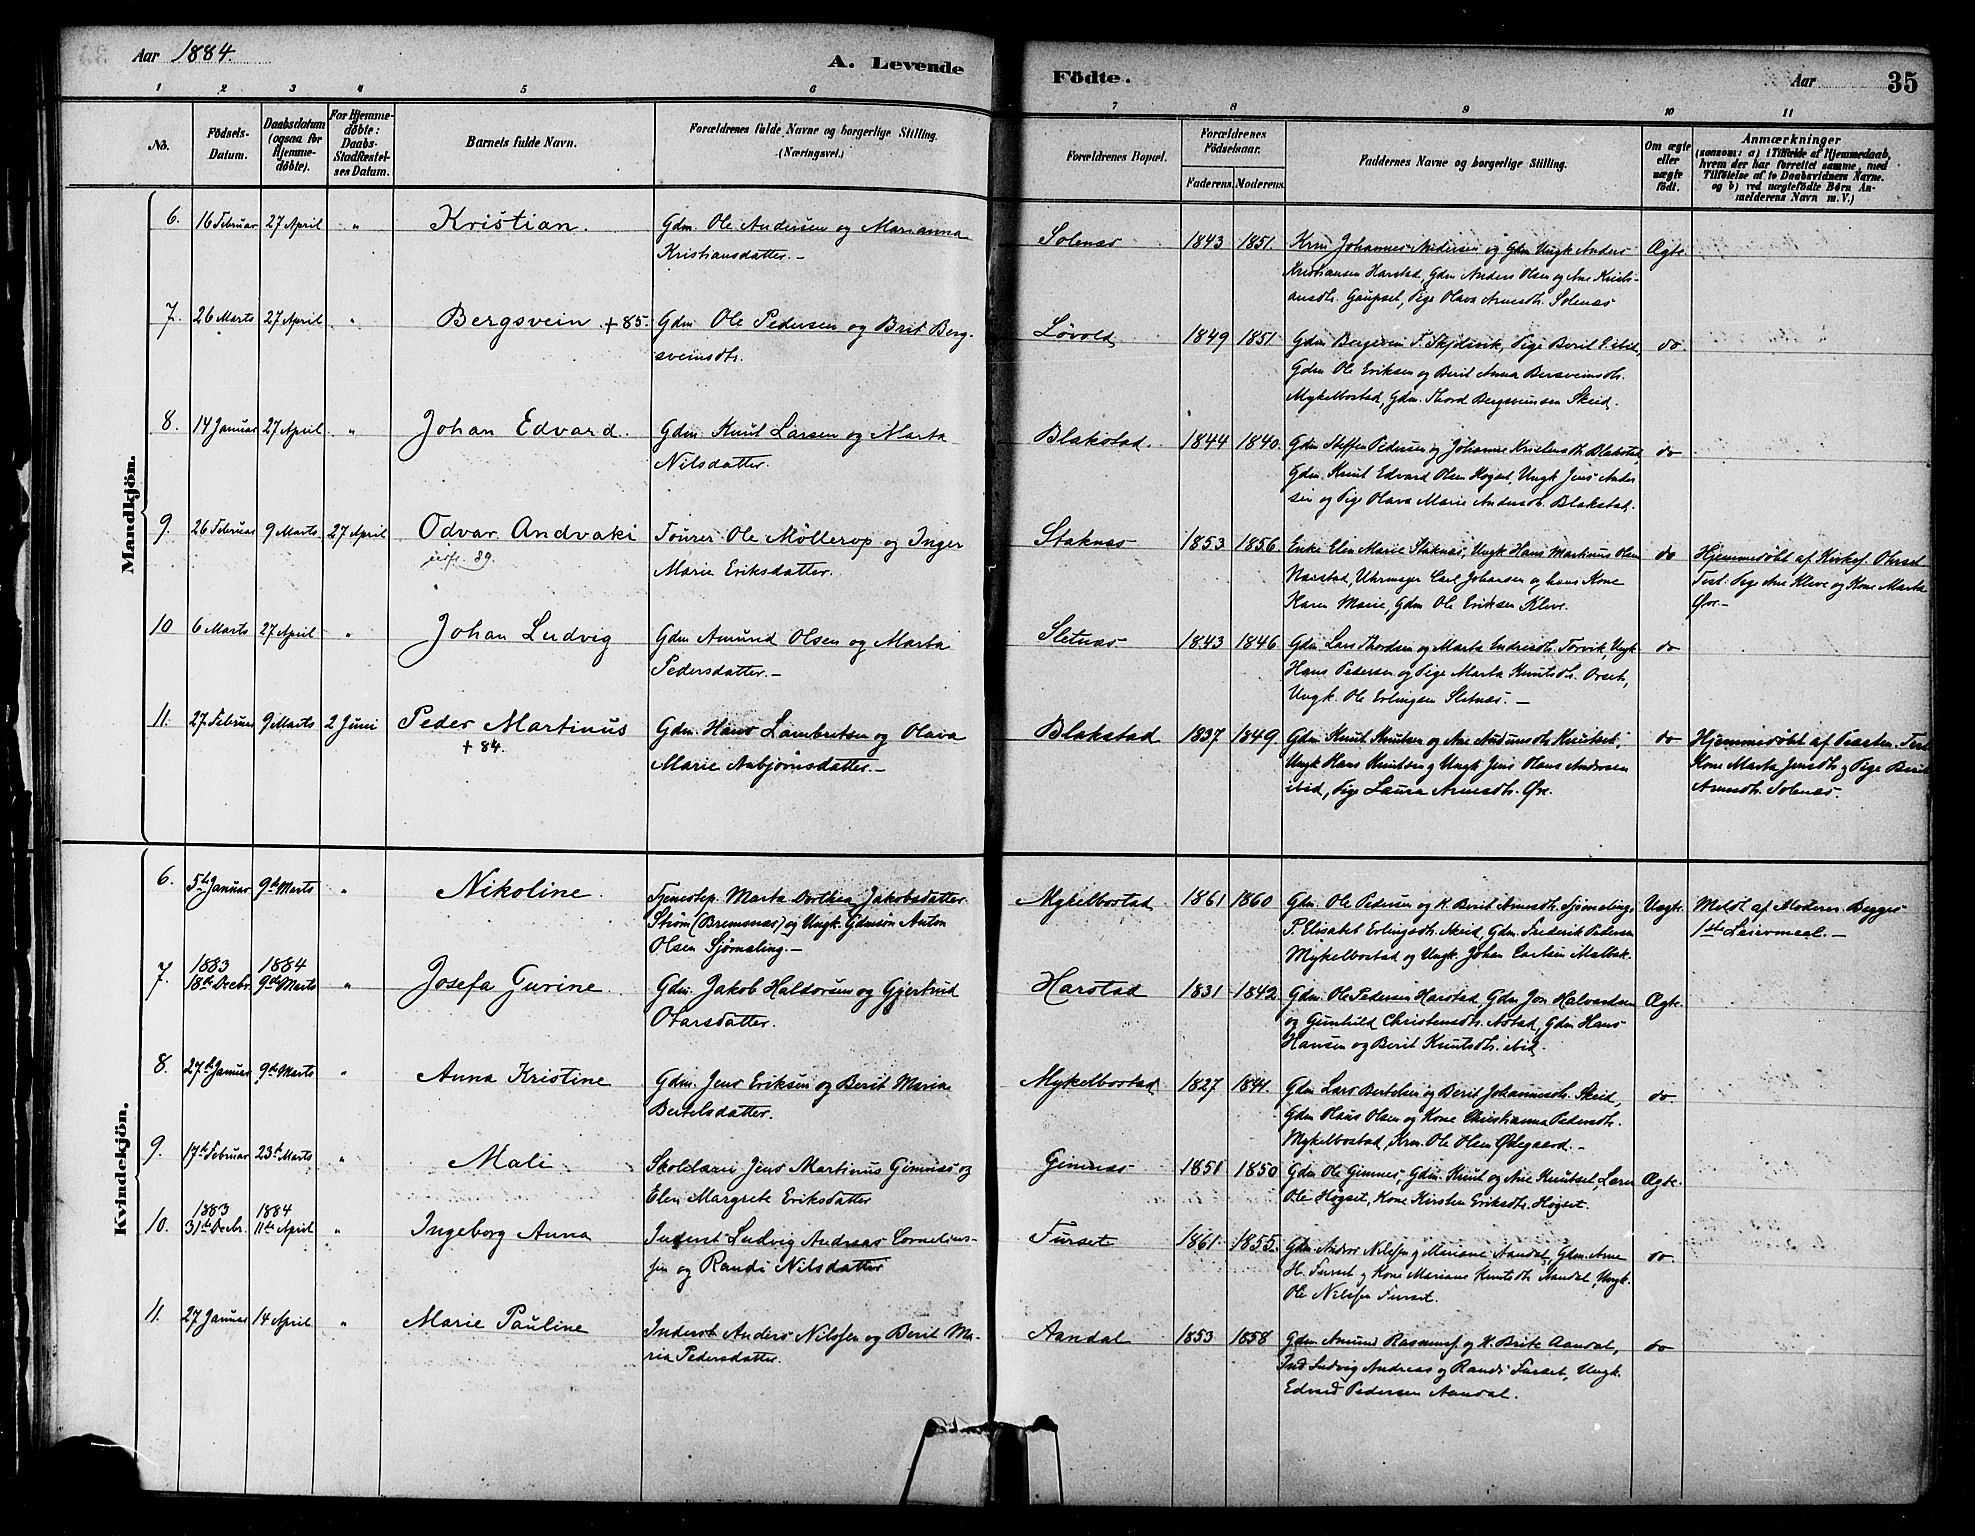 Aar 1884.
A. Levende
Födte.
Aar
35
1 2 3 4 5 6 7 8 9 10 11
No.
Födsels-
Datum.
Daabsdatum
(ogsaa for
Hjemme-
döbte).
For Hjemme-
döbte:
Daabs-
Stadfæstel-
ses Datum.
Barnets fulde Navn.
Forældrenes fulde Navne og borgerlige Stilling.
(Næringsvei.)
Forældrenes Bopæl.
Forældrenes
Födselsaar.
Faderens. Moderens.
Faddernes Navne og borgerlige Stilling.
Om ægte
eller
uægte
födt.
Anmærkninger
(saasom: a) i Tilfælde af Hjemmedaab,
hvem der har forrettet samme, med
Tilföielse af to Daabsvidners Navne.
og b) ved uægtefödte Börn An-
melderens Navn m. V.)
Mandkjön.
6. 16 Februar 27 April " Kristian. Gdm. Ole Andersen og Marianna
Kristiansdatter. -
Solenæs 1843 1851. Krm Johannes Andersen og Gdm Ungk Anders
Kristiansen Harstad, Gdm Anders Olsen og Ane Kristi-
ansdtr. Gaupset, Pige Olava Arnesdtr. Solenæs
Ægte.
7. 26 Marts 27 April " Bergsvein + 85. Gdm Ole Pedersen og Brit Berg-
sveinsdtr.
Løvold 1849 1851. Gdm Bergsvein T. Skjelsvik, Pige Beril ibid,
Gdm Ole Eriksen og Berit Anna Bersveinsdtr.
Mykelbostad, Gdm. Thord Bergsveinsen Skeid.
do.
8. 14 Januar 27 April " Johan Edvard. Gdm Knut Larsen og Marta
Nilsdatter.
Blakstad. 1844 1840. Gdm Steffen Pedersen og Johanne Kristensdtr. Blakstad,
Gdm. Knut Edvard Olsen Høgset, Ungk Jens Ander-
sen og Pige Olava Marie Andersdtr. Blakstad.
do
9. 26 Februar 9 Marts 27 April Odvar Andvaki
89.
Ole Møllerop og Inger
Marie Eriksdatter.
Staknæs 1853 1856 Enke Elen Marie Staknæs, Ungk Hans Martinus Olsen
Narstad, Uhrmager Carl Johansen og hans Kone
Karen Marie, Gdm Ole Eriksen Kleve.
do Hjemmedøbt af Kirkes.
Test. Pige Ane Kleve og Kone Marta
Øre. -
10 6 Marts 27 April " Johan Ludvig Gdm Amund Olsen og Marta
Pedersdatter. -
Sletnæs 1843 1846 Gdm Lars Thordsen og Marta Indresdtr. Torvik, Ungk
Hans Pedersen og Pige Marta Knutsdtr. Orset,
Ungk. Ole Erlingsen Sletnæs. -
do
11. 27 Februar 9 Marts 2 Juni Peder Martinus
+ 84.
Gdm. Hans Lambritsen og Olava
Marie Asbjørnsdatter. -
Blakstad 1837 1849. Gdm Knut Knutsen og Ane Audunsdtr. Knutset,
Ungk Hans Knutsen og Ungk Jens Hans Andersen
ibid, Pige Laura Arnesdtr. Øre.
do Hjemmedøbt af Presten. Test.
Kone Marta Jensdtr. og Pige Berit
Arnesdtr. Solenæs.
Kvindekjön.
6. 5te Januar 9de Marts " Nikoline. Tjenestep. Marta Dorthea Jakobsdatter
Strøm (Bremsnæs) og Ungk. Gdmsøn Anton
Olsen Sjømæling. -
Mykelbostad 1861 1860 Gdm. Ole Pedersen og K. Berit Arnesdtr. Sjømæling,
P. Elisabet Erlingsdtr. Skeid, Gdm. Frederik Pedersen
Mykelbostad og Ungk. Johan Carlsen Malbæk.
Uægte. Meldt af Moderen. Begges
1ste Leiermaal. -
7. 1883
18de Decbr. 1884
9de Marts " Josefa Gurine. Gdm. Jakob Haldorsen og Gjertrud
Otarsdatter.
Harstad 1831 1842 Gdm. Ole Pedersen Harstad, Gdm Jon Halvardsen
og Gunhild Christensdtr. Astad, Gdm Hans
Hansen og Berit Knutsdtr. ibid.
Ægte.
8. 27de Januar 9de Marts " Anna Kristine Gdm. Jens Eriksen og Berit Marie
Bertelsdatter.
Mykelbostad 1827 1841. Gdm Lars Bertelsen og Berit Johannesdtr. Skeid,
Gdm Olaus Olsen og Kone Christianna Pedersdtr.
Mykelbostad, Krm. Ole Olsen Ødegaard. -
do.
9. 17de Februar 23de Marts " Mali Skolelærer Jens Martinus Gimnæs og
Elen Margrete Eriksdatter
Gimnæs 1851 1850 Gdm Ole Gimnes, Gdm. Knut og Ane Knutset, Lærer
Ole Høgset, Kone Kirsten Eriksdtr. Høgset.
Ægte.
10. 1883
31te Decbr. 1884
11te April " Ingeborg Anna Inderst Ludvig Andreas Cornelius-
sen og Randi Nilsdatter
Furset 1861 1855. Gdm Andor Nilssen og Mariane Aandal, Gdm. Arne
H. Furset og Kone Mariane Knutsdtr. Aandal, Ungk.
Ole Nilssen Furset.
do.
11. 27 Januar 14 April " Marie Pauline Inderst Anders Nilssen og Berit Ma-
ria Pedersdatter.
Aandal 1853 1858 Gdm Amund Rasmuss. og K. Brite Aandal,
Ind Ludvig Andreas og Randi Furset, Ungk.
Edvard Pedersen Aandal.
do